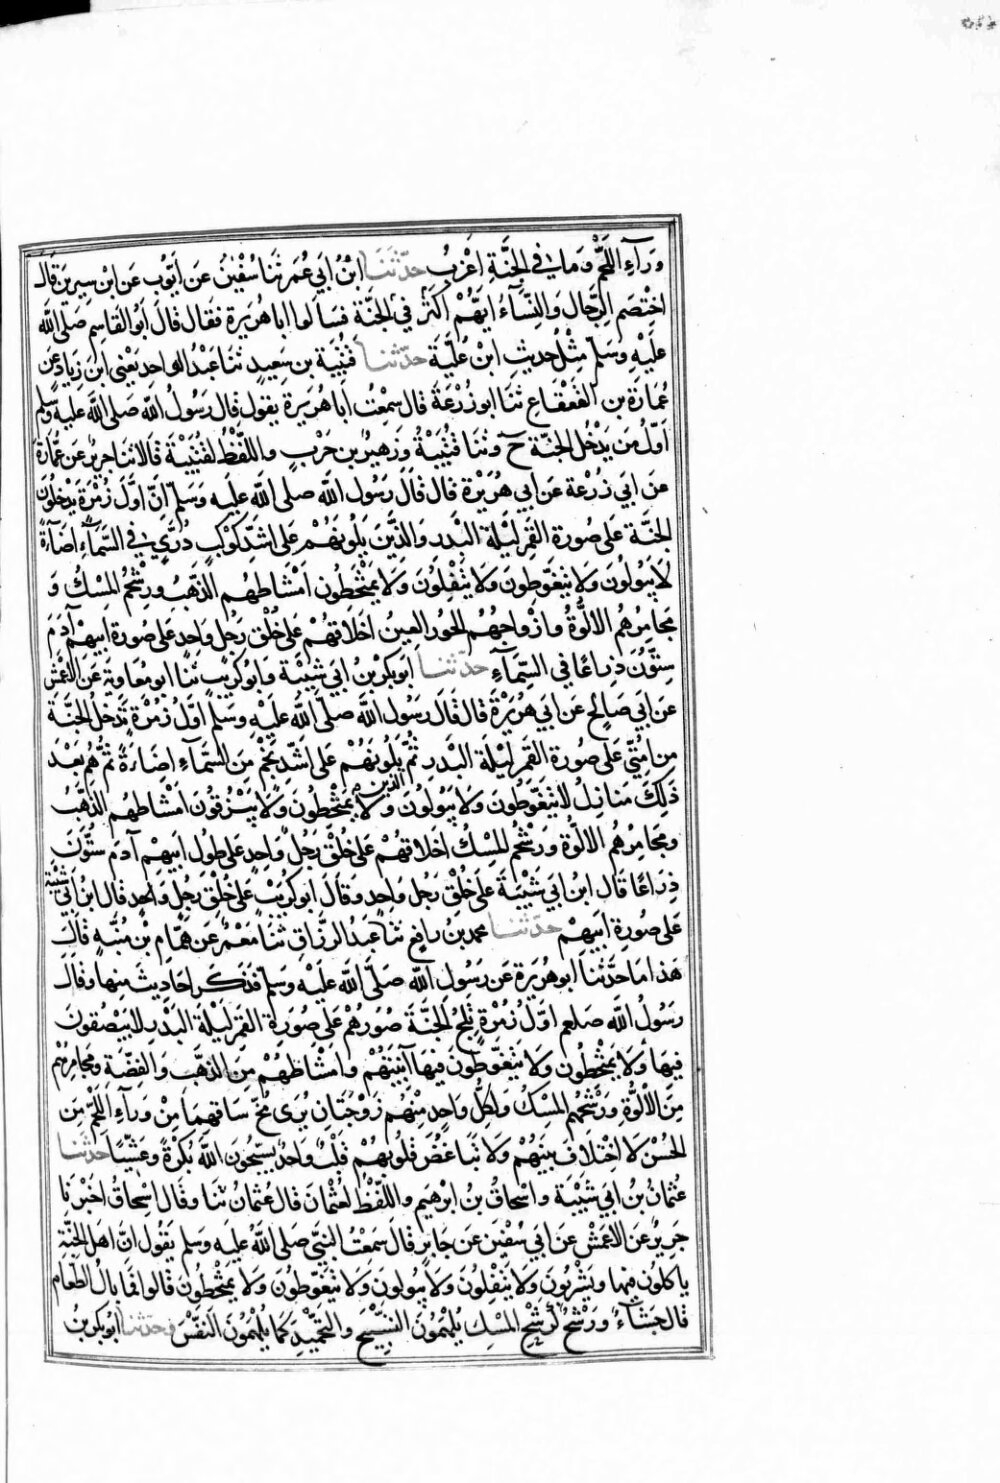 وَرَآءِ اللَّحْمِ وَمَا في الجَنَّةِ اَعْزَبُ حدّثنا ابْنُ اَبي عُمَر ثنَا سُفيٰنُ عَن اَيّوُب عَن ابْن سِيرينَ قالَ
اخْتصَم الرِّجَال وَالنِّسَآءُ ايّهُمْ اكثَرُ في الجَنّة فسَألوا اباهُريَرة فقال قالَ ابُو القَاسِم صَلى الله
عليْهِ وسَلم مِثْل حديثِ ابْن عُليَّة حدّثنا قتَيْبَة بن سَعِيدٍ ثنا عَبْدُ الواحِد يَعْني ابن زيادٍ عَن
عُمارَة بن القَعْقاعِ ثنَا ابو زُرْعَة قال سمِعْت اباهُريَرة يقول قال رَسُول الله صَلى الله عليْه وسَلم
اوّل مَن يَدْخُل الجنّة ح وثنَا قتَيْبَةُ وَزهَيْر بن حَرْبٍ واللفْظ لقتَيْبَة قالا ثنا جَريرٌ عَن عُمارَة
عَن ابي زُرْعة عَن ابي هُريْرة قال قالَ رَسُول الله صلى الله عليْه وَسَلم اِنّ اَوَّل زُمْرَةٍ يَدْخلونَ
الجنّة عَلى صُورة القمَر ليْلة البَدر وَالذّينَ يَلُونهُمْ عَلى اشدّ كَوْكبٍ دُرّيٍّ في السّمآءِ اضَآءَةً
لا يَبولونَ وَلا يَتغوَّطونَ وَلا يَتْفلونَ وَلا يَمْتخِطون امْشاطهُم الذّهَب وَرشْحُهُم المِسْك وَ
مَجامِرُهُم الالُوَّةُ وازْواجُهُم الحُور العِينُ اخلاقهُمْ عَلى خُلْق رَجُل وَاحدٍ على صُورة ابيهمْ آدَمَ
سِتّوُن ذراعًا في السّمآءِ حدّثنا ابو بكر بن ابي شيْبَة وَابو كُريْبٍ ثنا ابو مُعَاوية عَن الاَعْمش
عَن ابي صَالح عَن ابي هُريْرَة قال قال رَسُول الله صلى الله عليْهِ وسَلم اوّلُ زُمْرَةٍ تَدخل الجنّة
مِن اُمّتي عَلى صُورة القمر ليْلة البَدر ثُم الذين يَلُونهُمْ عَلى اشدّ نَجْمٍ مِنَ السَّمآءِ اضَاءَةً ثم هُم بَعْدَ
ذَلِكَ مَنازِلُ لا يَتغوّطونَ وَلا يَبُولُونَ وَلا يمْتخطونَ وَلا يَبْزُقوُن امْشاطهُم الذّهَبُ
وَمجامِرُهُم الالُوَّة وَرَشْحُهُم المِسْكُ اخلاقهُمْ عَلى خُلْق رَجُل وَاحِدٍ على طُول ابيهِمْ آدَم ستُّونَ
ذِرَاعًا قال ابن ابي شيْبَة عَلى خُلْق رَجُل وَاحدٍ وَقالَ ابو كُريْب عَلى خُلْق رَجُلٍ وَاحدٍ قال ابن ابي شيْبة
عَلى صُورة ابيهمْ حدّثنا محمد بن رَافِع ثنا عَبدُ الرزّاق ثنَا مَعْمَرٌ عَن همّام بْن مُنَبّهٍ قالَ
هَذا مَا حَدّثنا ابوهُريَرة عَن رَسُول الله صَلى الله عليْه وسَلم فذكَر احاديث مِنها وقال
رَسُول الله صلعم اوَّل زُمْرةٍ تَلِجُ الجَنَّةَ صُوَرُهُمْ عَلى صُورَة القَمر ليْلَة البَدْر لا يَبْصُقونَ
فيهَا وَلا يَمْتخِطُونَ وَلا يَتَغَوّطونَ فيهَا آنيَتهُمْ وَامْشاطهُمْ مِنَ الذّهَب وَالفِضّة وَمجامِرُهُمْ
مِنَ الالُوَّةِ وَرَشْحُهُم المِسْكُ وَلكلّ وَاحدٍ مِنْهُم زَوْجَتانِ يُرَى مُخّ سَاقهِمَا مِنْ وَرَآءِ اللحْم مِنَ
الحُسْن لا اخْتِلافَ بيْنهُمْ وَلا تَباغضَ قلُوبُهُمْ قَلبٌ وَاحدٌ يُسَبّحُونَ الله بُكْرَةً وعَشيًّا حدثنا
عُثمان بن ابي شيْبَة وَاسْحاقُ بن ابرهيم واللفْظ لعُثمانَ قال عُثمانُ ثنَا وقال اسْحاقُ اخبَرنا
جَريرٌ عَن الاعْمش عَن ابي سُفيٰن عَن جَابرٍ قالَ سَمعْتُ النبيّ صَلى الله عليْه وسَلم يَقُول انّ اهل الجنّة
ياكلوُن فيها وَيشْربُونَ وَلا يَتْفِلونَ وَلا يَبولونَ وَلا يَتغَوّطونَ وَلا يمتْخِطونَ قالوا فمَا بَالُ الطّعَام
قال جشآءٌ وَرَشْحٌ كرَشْح المِسْكِ يُلهَمُونَ التسْبيحَ والتّحْميدَ كمَا يُلهمُونَ النَفسَ وحدثنا ابو بكر بن